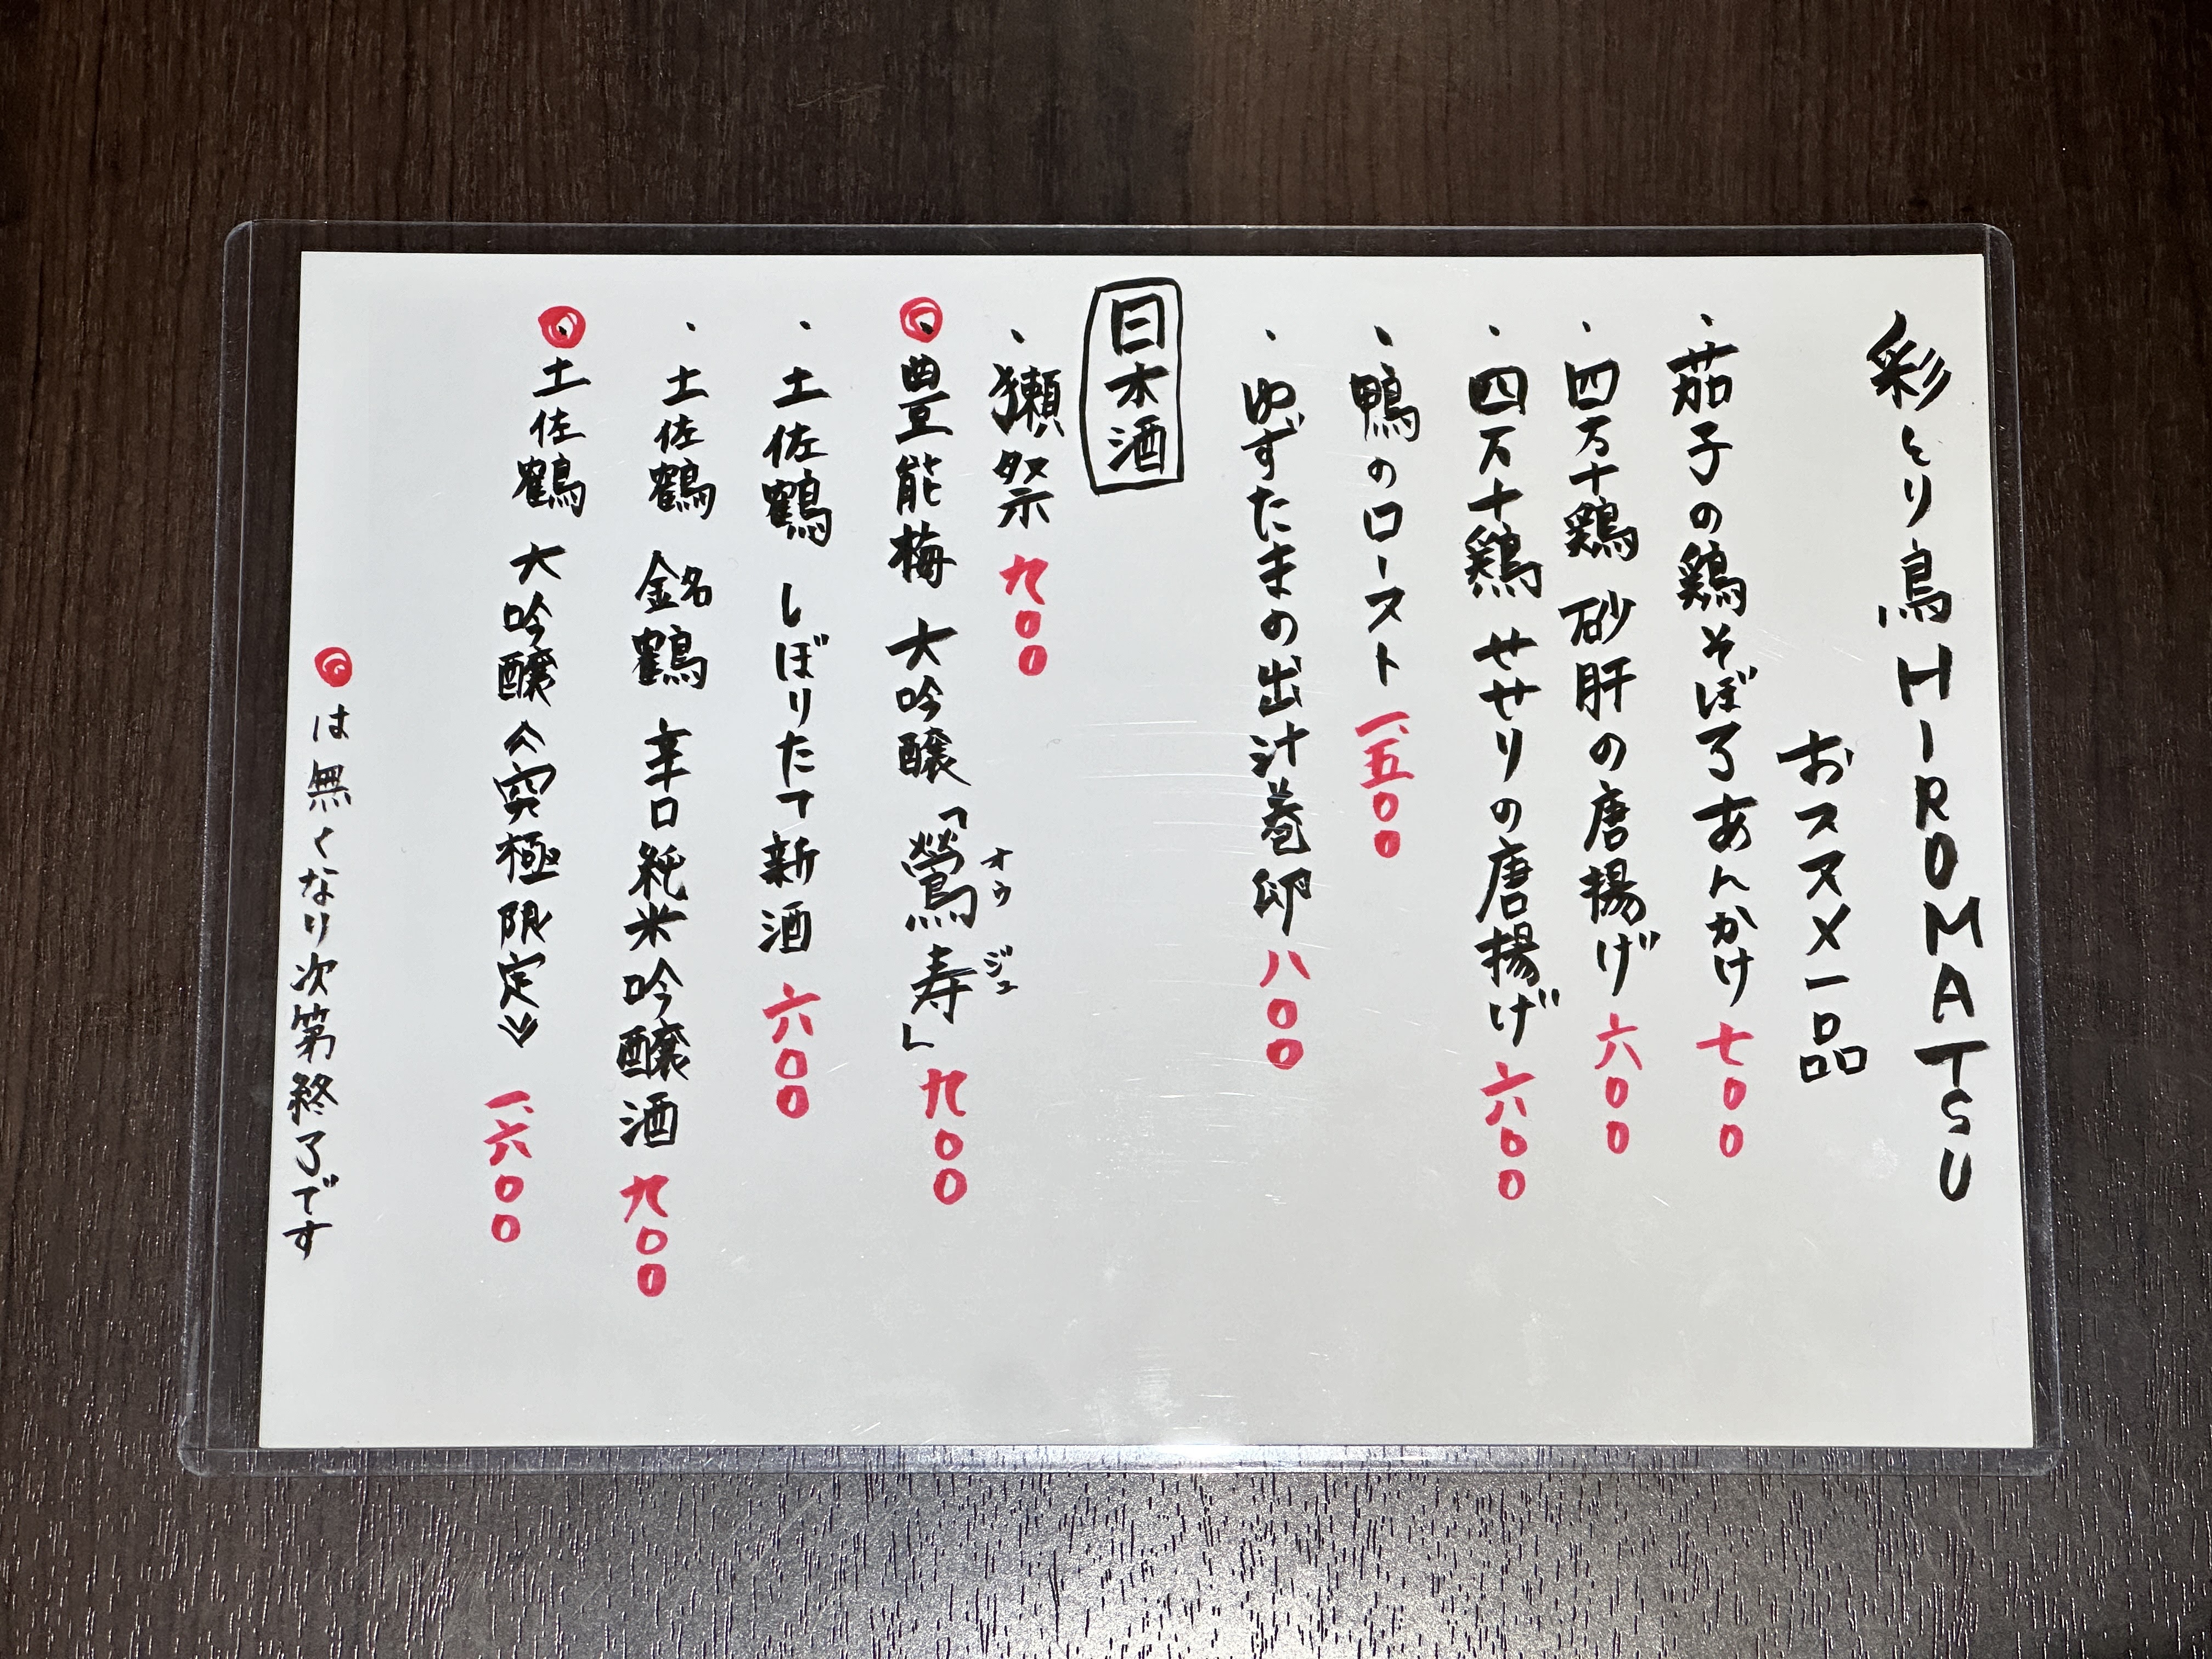 彩とり鳥HIROMATSU
おススメ一品
・茄子の鶏そぼろあんかけ 七〇〇
・四万十鶏 砂肝の唐揚げ 六〇〇
・四万十鶏 せせりの唐揚げ 六〇〇
・鴨のロースト 一、五〇〇
・ゆずたまの出汁巻卵 八〇〇
日本酒
・獺祭 九〇〇
◎豊能梅 大吟醸「鶯寿」 九〇〇
オウ ジュ
・土佐鶴 しぼりたて新酒 六〇〇
・土佐鶴 銘鶴 辛口純米吟醸酒 九〇〇
◎土佐鶴 大吟醸《究極限定》 一、六〇〇
◎は無くなり次第終了です